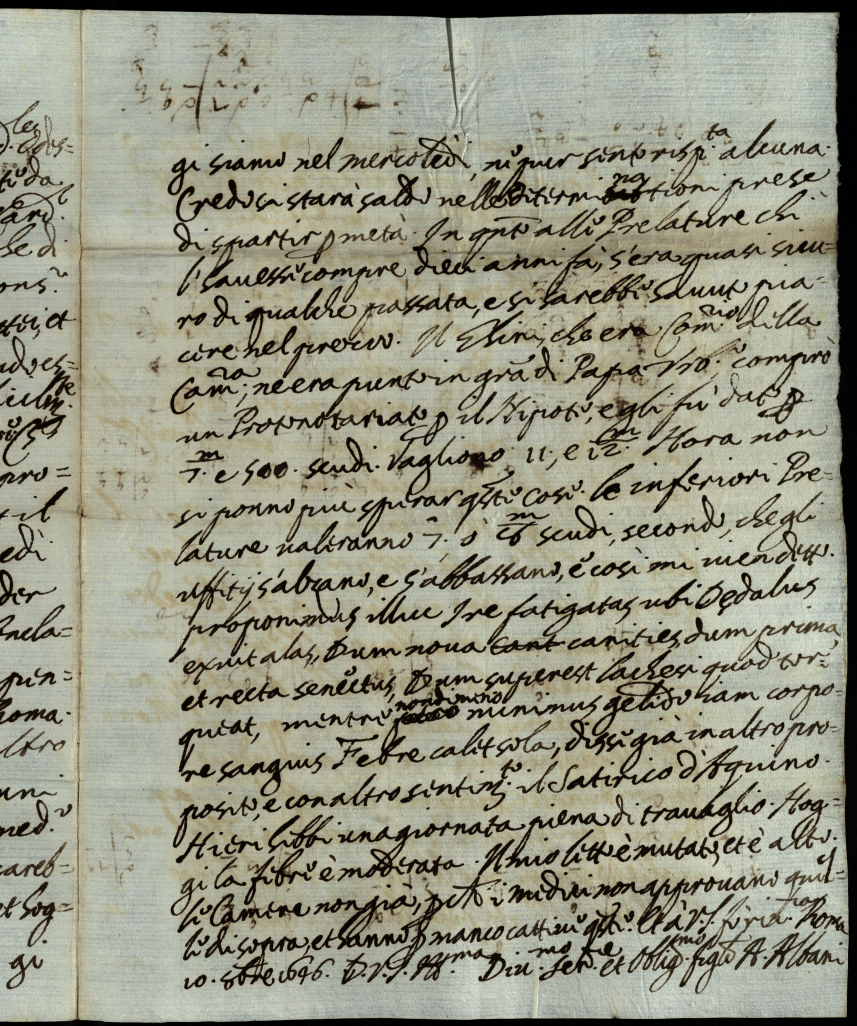 gi siamo nel mercoledì, ne pur sento risp.ta alcuna.
Credo si starà saldo nelle determinationi prese
di spartir p metà. In q.nto alle Prelature chi
l'havesse compre dieci anni fà, s'era quasi sicu=
ro di qualche passata, e si sarebbe havuto pia=
cere nel prezzo. Il che era Com.rio della
Cam.ra; ne era punto in gra di Papa Urb.° comprò
un Protonotariato p il Nipote, e gli fù dato p
7.m e 500. scudi. Vagliono 11, e 12.m Hora non
si ponno più sperar q.ste cose. le inferiori Pre=
lature valtranno 7, ò 8m scudi, secondo, che gli
uffitij s'alzano, e s'abbassano, e così mi vien detto.
proponimus illuc Ire fatigatas ubi Dędalus
exuit alas, Dum nova canities, dum prima
et recta senectus, Dum superest lachesi quod tor=
queat, mentre nondimeno minimus gelido iam corpo=
re sanguis Febre calet sola, disse già in altro pro=
posito, e con altro sentim.to il Satirico d'Aquino.
Hieri hebbi una giornata piena di travaglio. Hog=
gi la febre è moderata. Il mio letto è mutato, et è alto.
le Camere non già, p.chè i medici non approvano quel=
le di sopra, et hanno p manco cattive q.ste. Et à V.S.
Roma
10. 8bre 1696. D.V.S. Ill.ma Div.mo Ser.re et Oblig.mo A. Albani
les
pro=
til
edì
der
pen=
Roma.
altro
et hog=
gi